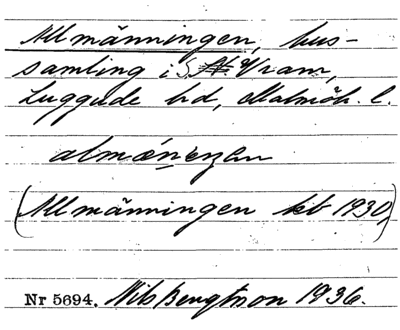 Allmänningen, hus-
samling i S. Vram,
Luggude hd, Malmöh. l.
almǽnenən
(Allmänningen kb 1930)
Nr 5694. Nils Bengtsson 1936.